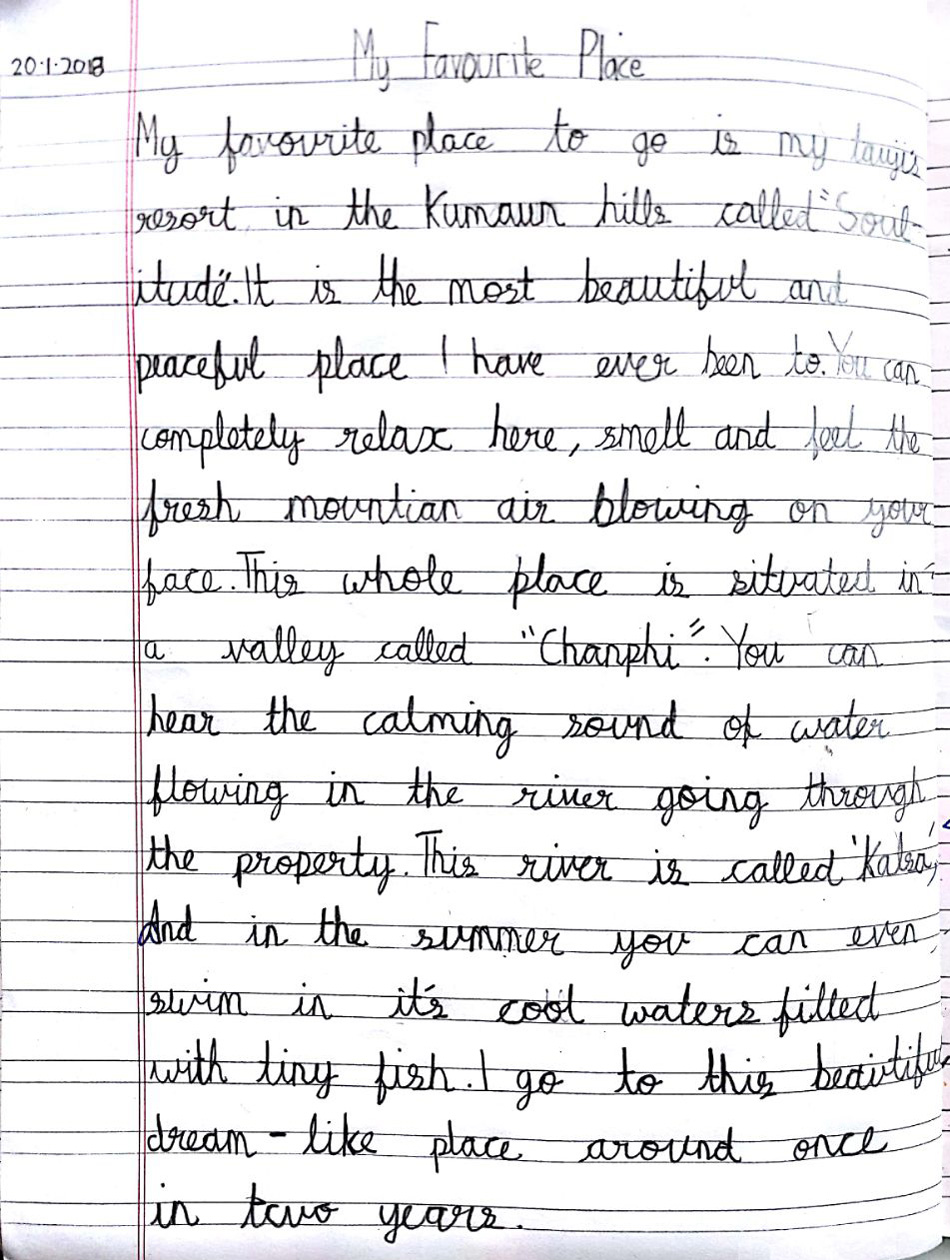 20.1.2018
My Favourite Place
My favourite place to go is my taujis
resort in the Kumaun hills called "Soul-
itude". It is the most beautiful and
peaceful place I have ever been to. You can
completely relax here, smell and feel the
fresh mountian air blowing on your
face. This whole place is situated in
a valley called "Chanphi". You can
hear the calming sound of water
flowing in the river going through
the property. This river is called 'Kalsa,
And in the summer you can even
swim in it's cool waters filled
with tiny fish. I go to this beautiful
dream-like place around once
in two years.